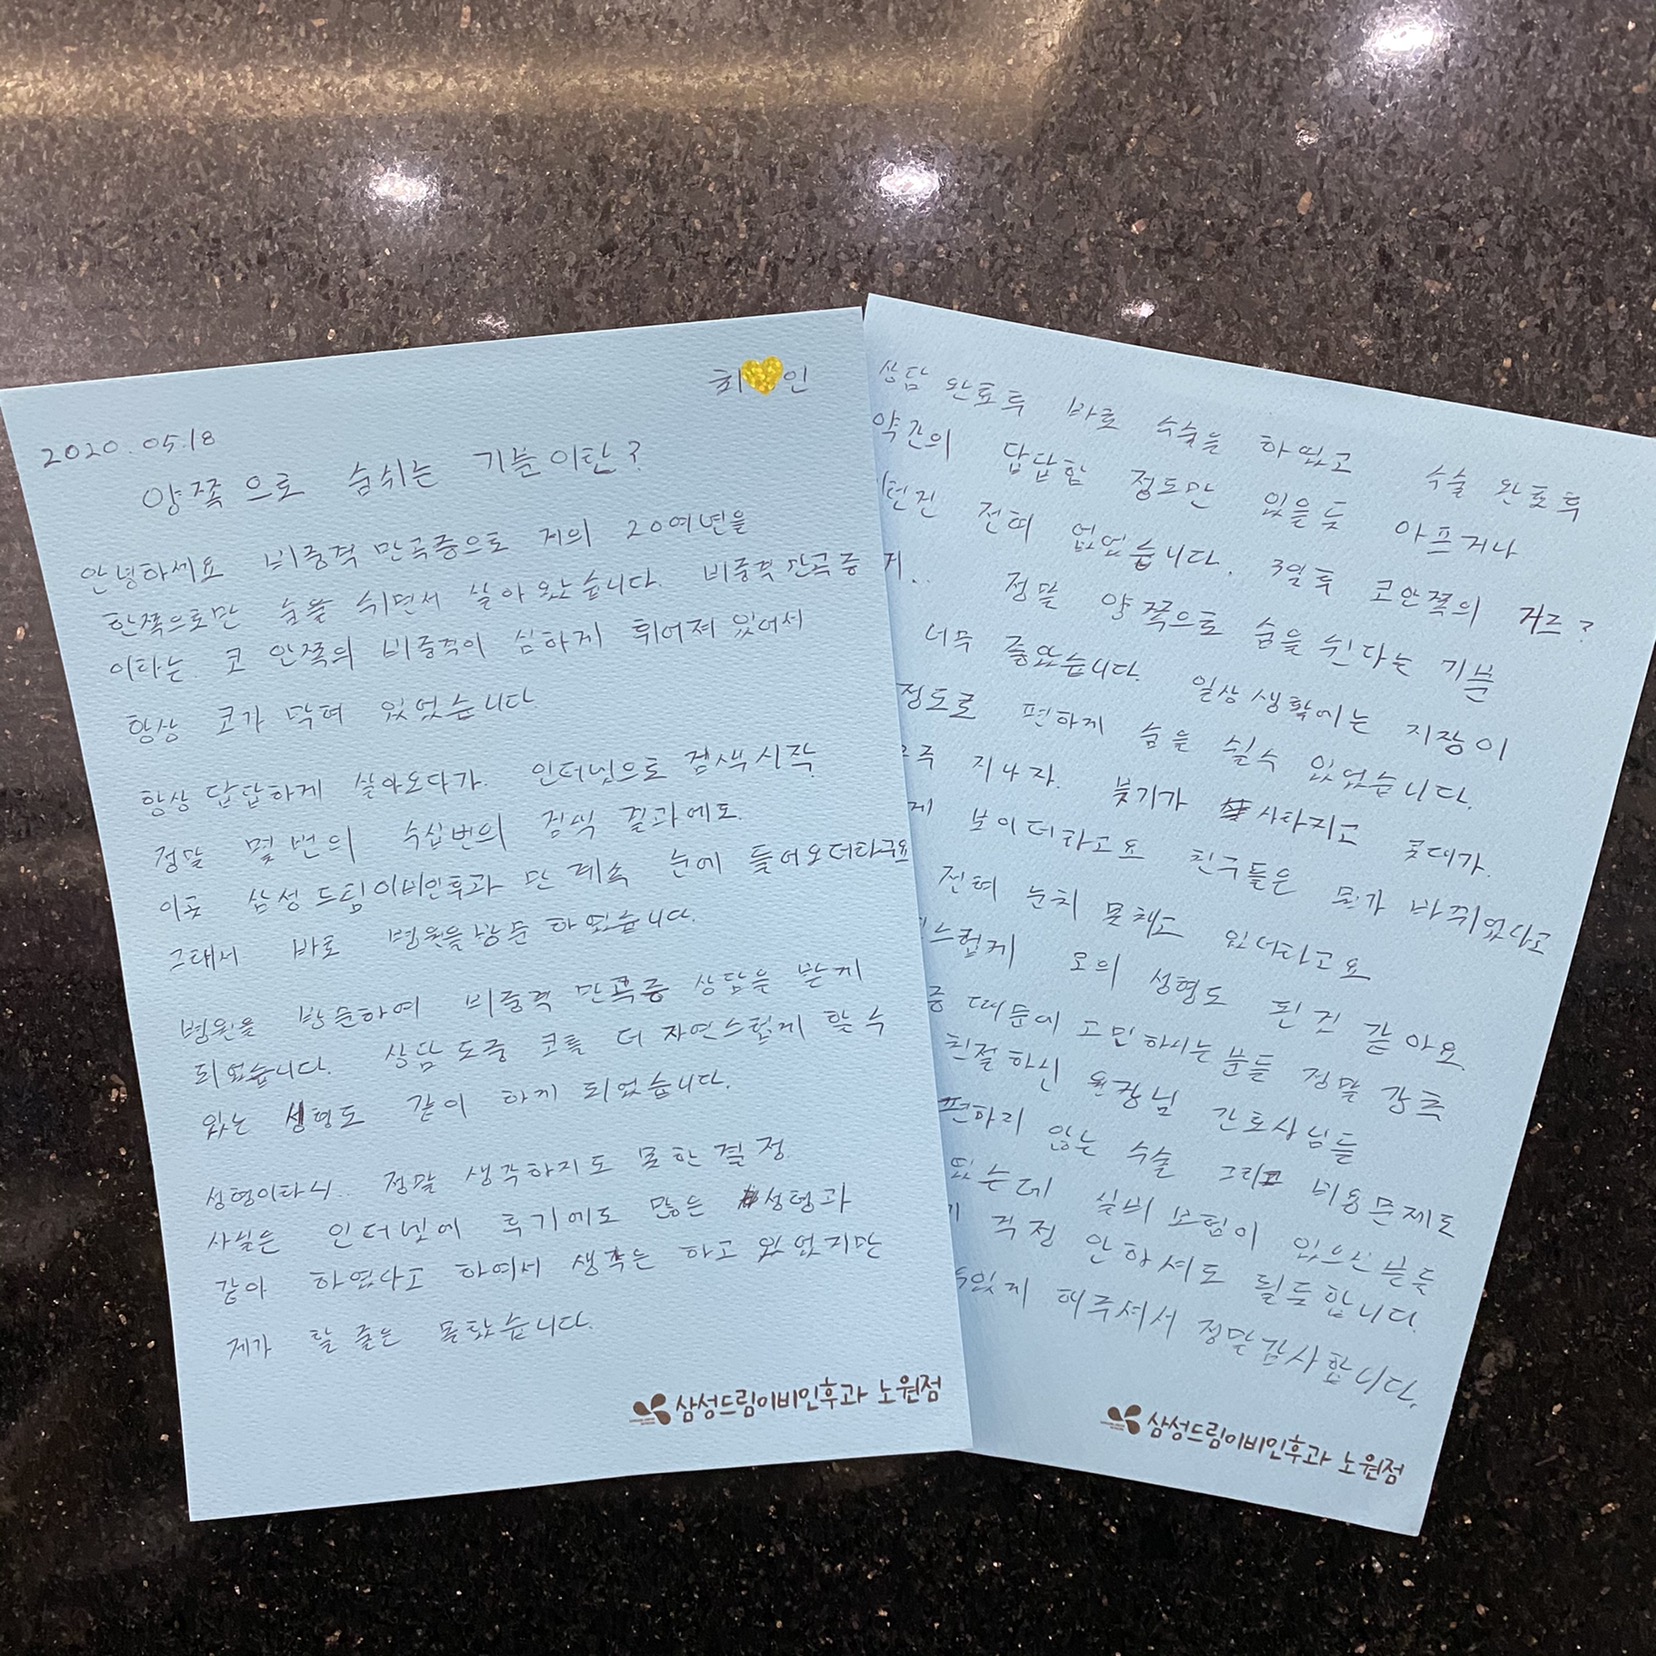 최 인
2020.05.18
양쪽으로 숨쉬는 기분이란?
안녕하세요 비중격 만곡증으로 저의 20여년을
한쪽으로만 숨을 쉬면서 살아왔습니다. 비중격만곡증
이라는 코 안쪽의 비중격이 심하게 휘어져 있어서
항상 코가 막혀 있었습니다
항상 답답하게 살아오다가. 인터넷으로 검색시작
정말 몇번의 수십번의 검색 결과에도
이곳 삼성드림이비인후과 만 계속 눈에 들어오더라구요
그래서 바로 병원을 방문 하였습니다.
병원을 방문하여 비중격 만곡증 상담을 받게
되었습니다. 상담 도중 코를 더 자연스럽게 할 수
있는 성형도 같이 하게 되었습니다.
성형이라니.. 정말 생각하지도 못한 결정
사실은 인터넷에 후기에도 많은 성형과
같이 하였다고 하여서 생각은 하고 있었지만
제가 할 줄은 몰랐습니다.
삼성드림이비인후과 노원점
상담 완료후 바로 수술을 하였고 수술 완료후
약간의 답답함 정도만 있을듯 아프거나
전혀 없었습니다. 3일후 코안쪽의 거즈?
정말 양쪽으로 숨을 쉰다는 기분
너무 좋았습니다. 일상생활에는 지장이
정도로 편하게 숨을 쉴수 있었습니다.
지나자. 붓기가 사라지고 콧대가.
보이더라고요 친구들은 뭔가 바뀌었다고
전혀 눈치 못채고 있더라고요
코의 성형도 된것 같아요
때문에 고민하시는 분들 정말 강추
친절하신 원장님 간호사님들
않는 수술 그리고 비용문제도
있는데 실비 보험이 있으신분들
걱정 안하셔도 될듯합니다.
해주셔서 정말감사합니다.
삼성드림이비인후과 노원점